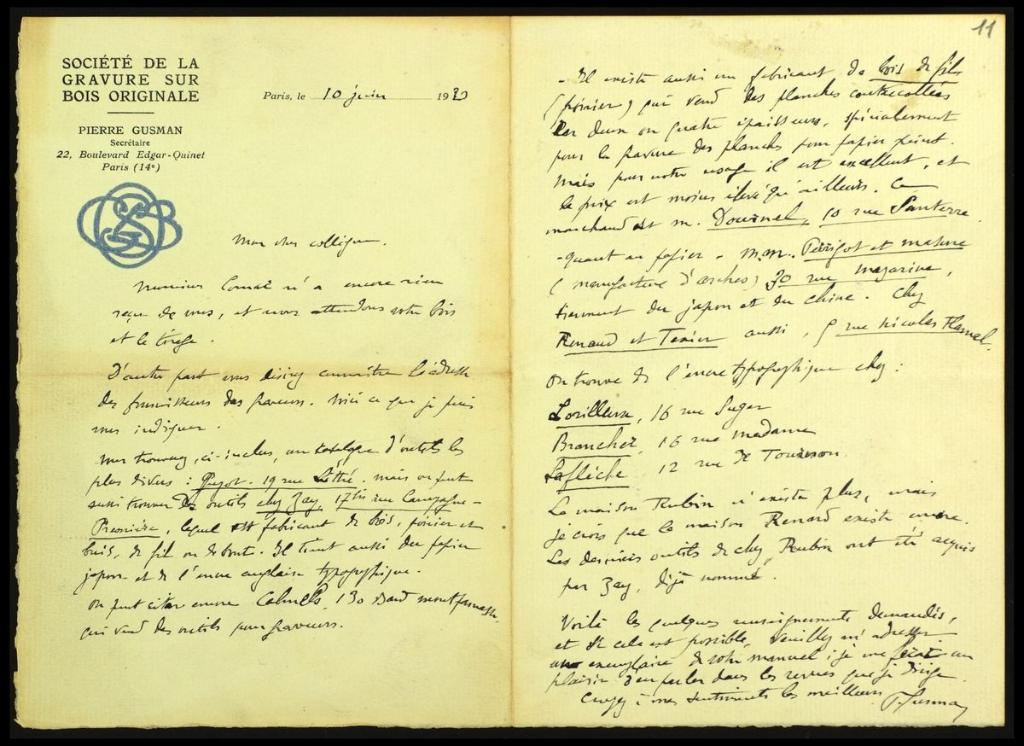 SOCIÉTÉ DE LA
GRAVURE SUR
BOIS ORIGINALE
PIERRE GUSMAN
Secrétaire
22, Boulevard Edgar-Quinet
Paris (14e)
Paris, le 10 juin 1920
Mon cher collègue.
Monsieur n'a encore rien
reçu de vous, et nous attendons votre bois
et le tirage.
D'autre part vous désirez connaître l'adresse
des fournisseurs des graveurs. Voici ce que je puis
vous indiquer.
Vous trouverez, ci-inclus, un catalogue d'outils les
plus divers : 19 rue Littré. mais on peut
aussi trouver des outils chez Zay, 17bis rue Campagne-
Première, lequel est fabricant de bois, poirier et
buis, de fil ou de bout. Il tient aussi du papier
japon et de l'encre anglaise typographique.
On peut citer encore 130 Bard montparnasse
qui vend des outils pour graveurs.
11
- Il existe aussi un fabricant de bois de fil
(poirier) qui vend des planches contrecollées
par deux ou quatre épaisseurs, spécialement
pour la gravure des planches pour papier peint.
Mais pour notre usage il est excellent, et
le prix est moins élevé qu'ailleurs. Ce
marchand est M. Dournel, 10 rue Santerre.
- Quant au papier - M.M. Perrigot et masure
(manufacture d'arches) 30 rue mazarine,
tiennent du japon et du chine. Chez
Renaud et Texier aussi, 5 rue Nicolas Flamel.
On trouve de l'encre typographique chez :
Lorilleux, 16 rue Suger
Brancher 16 rue madame
Laflèche 12 rue de Tournon.
La maison Rubin n'existe plus, mais
je crois que la maison Renard existe encore.
Les derniers outils de chez Rubin ont été acquis
par Zay, déjà nommé.
Voilà les quelques renseignements demandés,
et si cela est possible, veuillez m'adresser
un exemplaire de votre manuel ; je me ferai un
plaisir d'en parler dans les revues que je dirige.
Croyez à mes sentiments les meilleurs P. Gusman